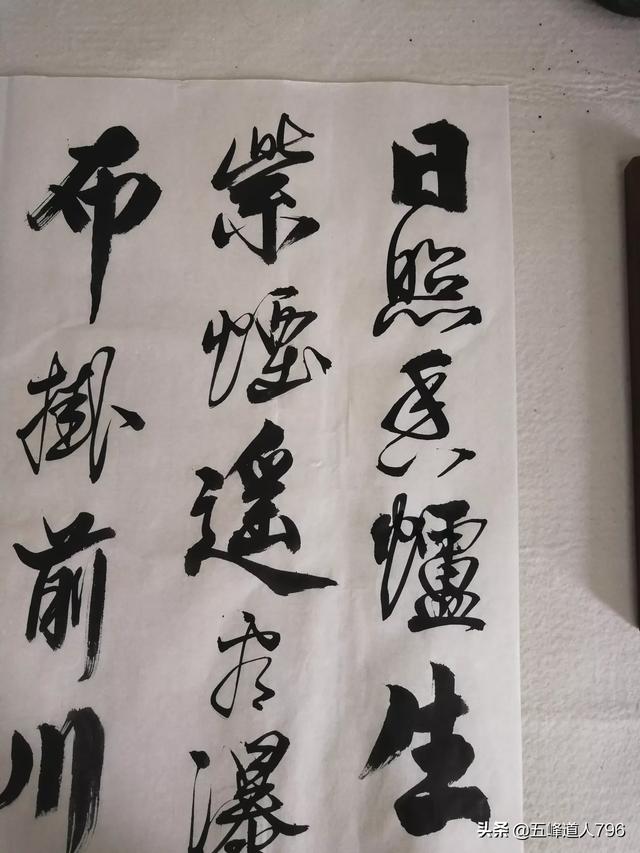 日照香爐生
紫煙遥看瀑
布掛前川
头条 @五峰道人796